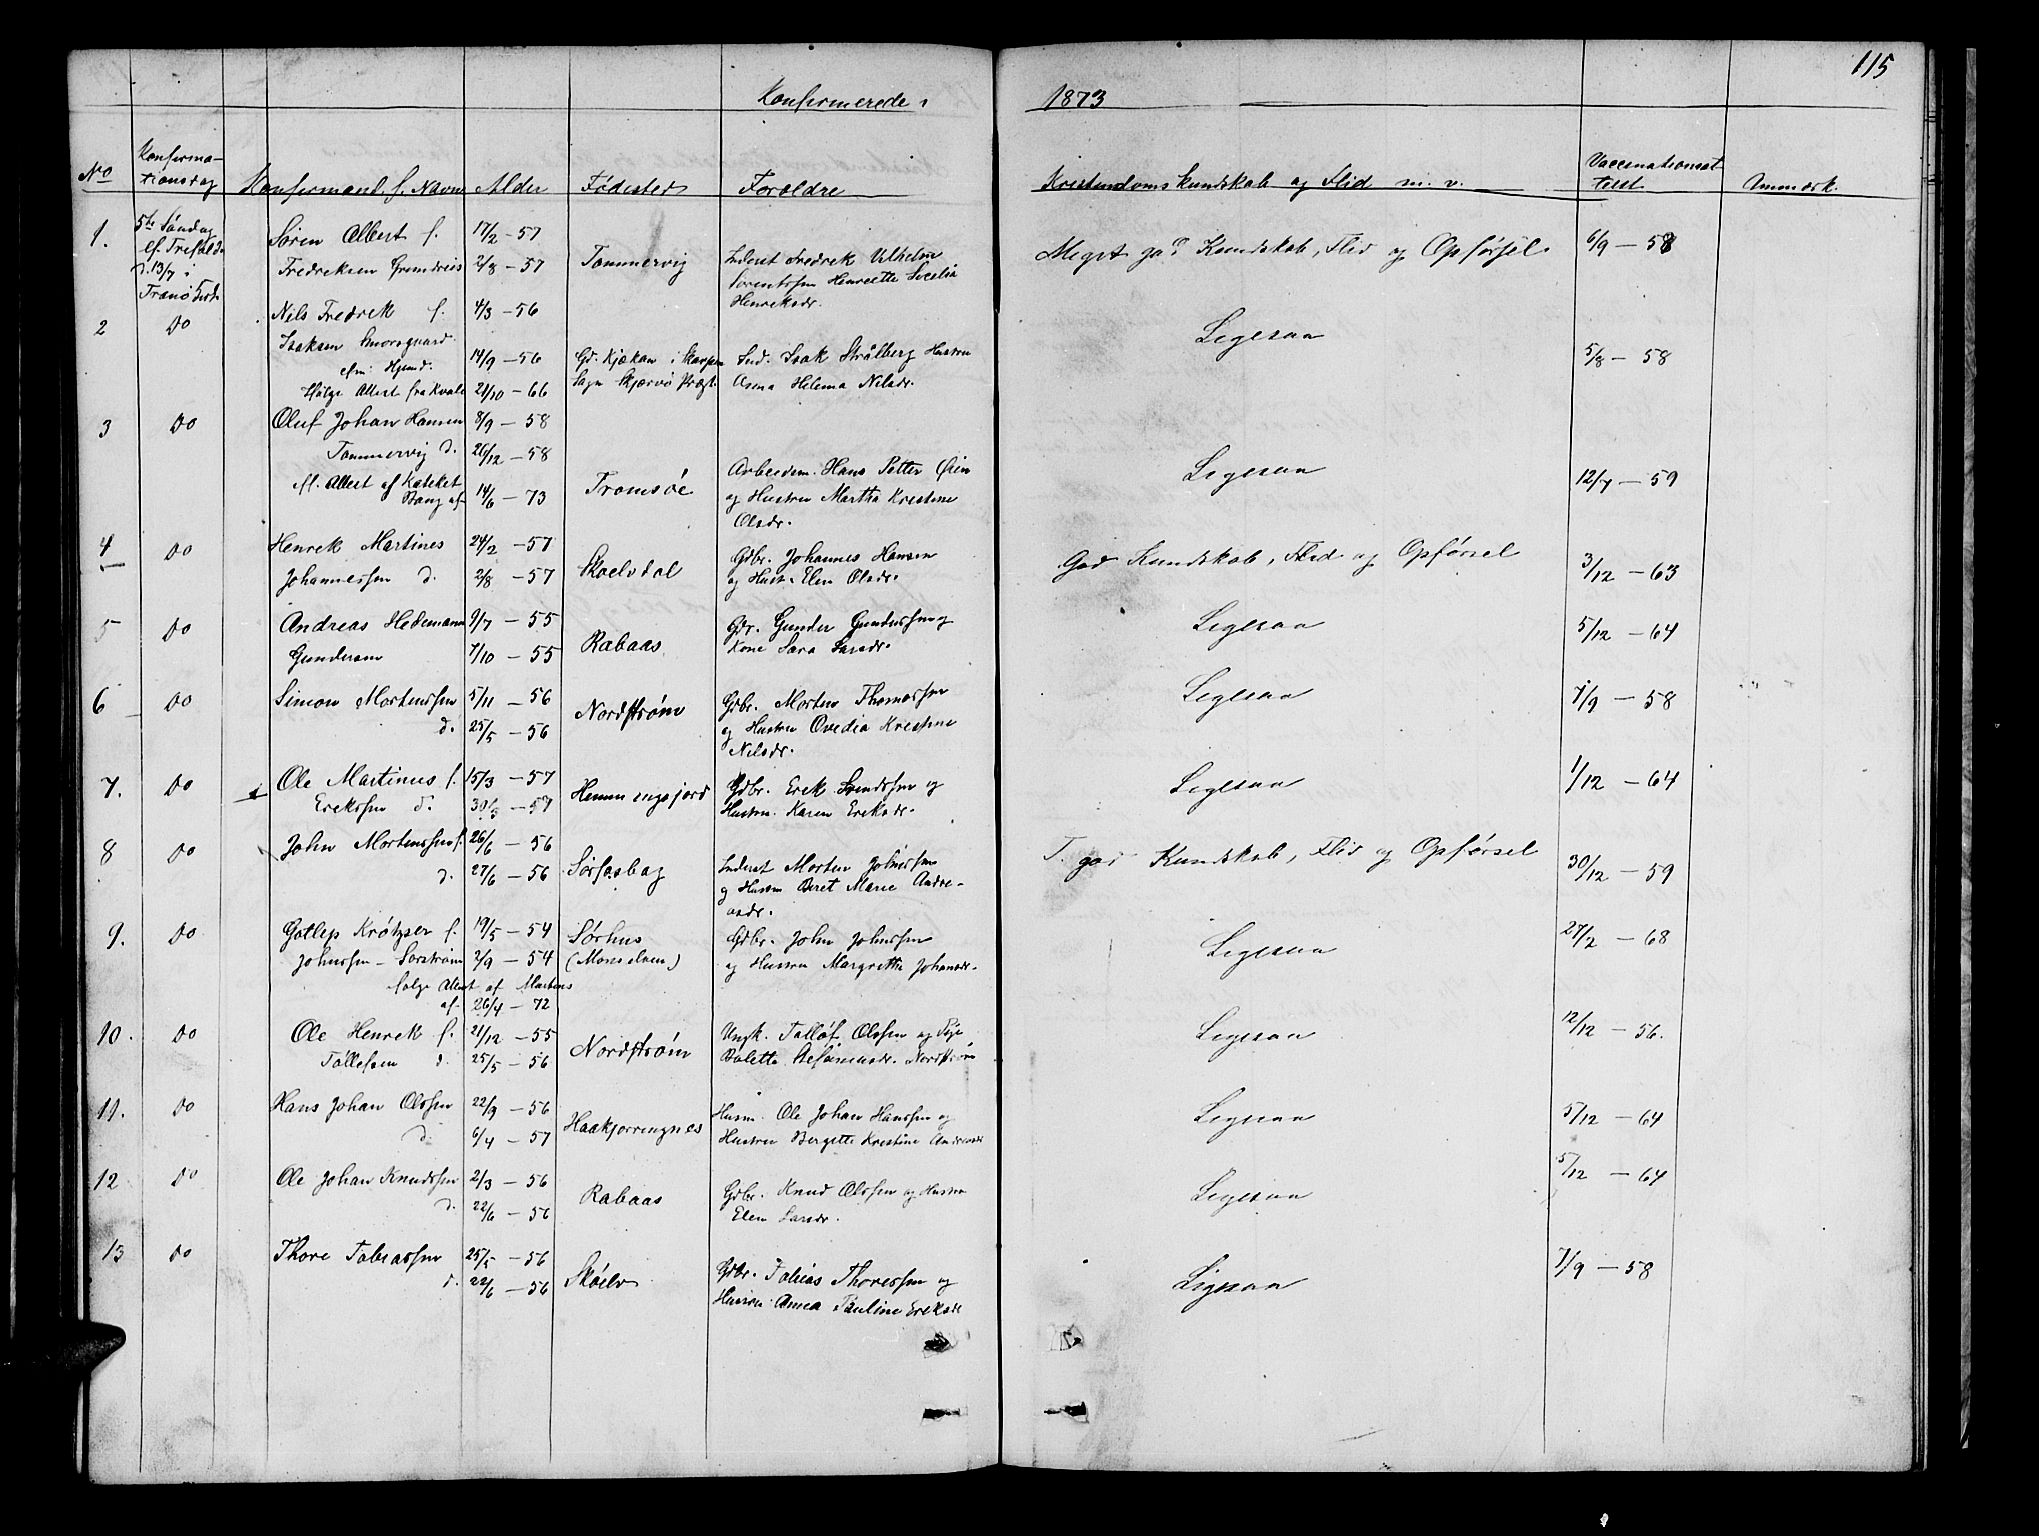 115
Konfirmerede i
1873
No
Konfirma-
tionsdag
Konfirmand. f. Navn
Alder
Fødested
Foroldre
Kristendoms Kundskab og Flid m. v.
Vaccinationsat
test
Anmærk.
1.
5te Søndag
ef. Trefold.
d. 13/7 i
Tranø Kirk.
Søren Albert f.
Fredreksen
17/2 - 57
2/8 - 57
Tømmervig
Inderst Fredrek Vilhelm
Sorentssen Henreette Secelia
Henreksdr.
Meget god Kundskab, Flid og Opførsel.
6/9 - 58
2
Do
Nils Fredrek f.
Isaksen
Følge Attest fra Kvale
4/3 - 56
14/9 - 56
21/10 - 66
Gd. Kjækan i
Sogn Skjervø Prægj.
Ind. Isak Strålberg Hustru
Anna Helena Nilsdr.
Ligesaa
5/8 - 58
3
Do
Oluf Johan Hansen
Tømmervig d.
efl. Attest af Kateket
Bang af
8/9 - 58
26/12 - 58
14/6 - 73
Tromsøe
Arbeidsm. Hans Petter Øien
og Hustru Martha Kristine
Olsdr.
Ligesaa
12/7 - 59
4
Do
Henrek Martines
Johannessen d.
24/2 - 57
2/8 - 57
Skoelvdal
Gdbr. Johannes Hansen
og Hust. Elen Olsdr.
God Kundskab, Flid og Opførsel
3/12 - 63
5
Do
Andreas Hedemann
Gundersen
9/7 - 55
7/10 - 55
Rabaas
Gdr. Gunder Gunderssen og
Kone Sara Larsdr.
Ligesaa
5/12 - 64
6
Do
Simon Mortenssen
d.
5/11 - 56
25/5 - 56
Nordstrøm
Gdbr. Morten Thomassen
og Hustru Ovedia Krestine
Nilsdr.
Ligesaa
7/9 - 58
7.
Do
Ole Martinus f.
Erekssen d.
15/3 - 57
30/3 - 57
Hemmingsfjord
Gdbr. Erek Svendssen og
Hustru Karen Ereksdr.
Ligesaa
1/12 - 64
8
Do
John Mortenssen f.
d.
26/6 - 56
27/6 - 56
Sørfasbog
Inderst Morten Johnssen
og Hustru Beret Marie Andre-
asdr.
T. god Kundskab, Flid og Opførsel
30/12 - 59
9.
Do
Gotlep Krøtzer f.
Johnssen - Sørstrøm
følge Attest af Martens
af
19/5 - 54
2/9 - 54
26/4 - 72
Sørhus
(Maaselven)
Gdbr. John Johnssen
og Hustru Margrethe Johansdr.
Ligesaa
27/2 - 68
10.
Do
Ole Henrek f.
Tøllefsen d.
21/12 - 55
25/5 - 56
Nordstrøm
Ungk. Tølløf Olssen og Pige
Boletta Stefanusdr. Nordstrøm
Ligesaa
12/12 - 56.
11.
Do
Hans Johan Olssen
d.
22/9 - 56
6/4 - 57
Haakjørringnes
Husm. Ole Johan Hanssen og
Hustru Bergitte Kristine Andreasdr
Ligesaa
5/12 - 64
12
Do
Ole Johan Knudssen
d.
2/3 - 56
22/6 - 56
Rabaas
Gdbr. Knud Olssen og Hustru
Elen Larsdr.
Ligesaa
5/12 - 64
13
Do
Thore Tobiassen
d.
25/5 - 56
22/6 - 56
Skøelv
Gdbr. Tobias Thoressen og
Hustru Anna Pauline Ereksdr
Ligesaa
7/9 - 58